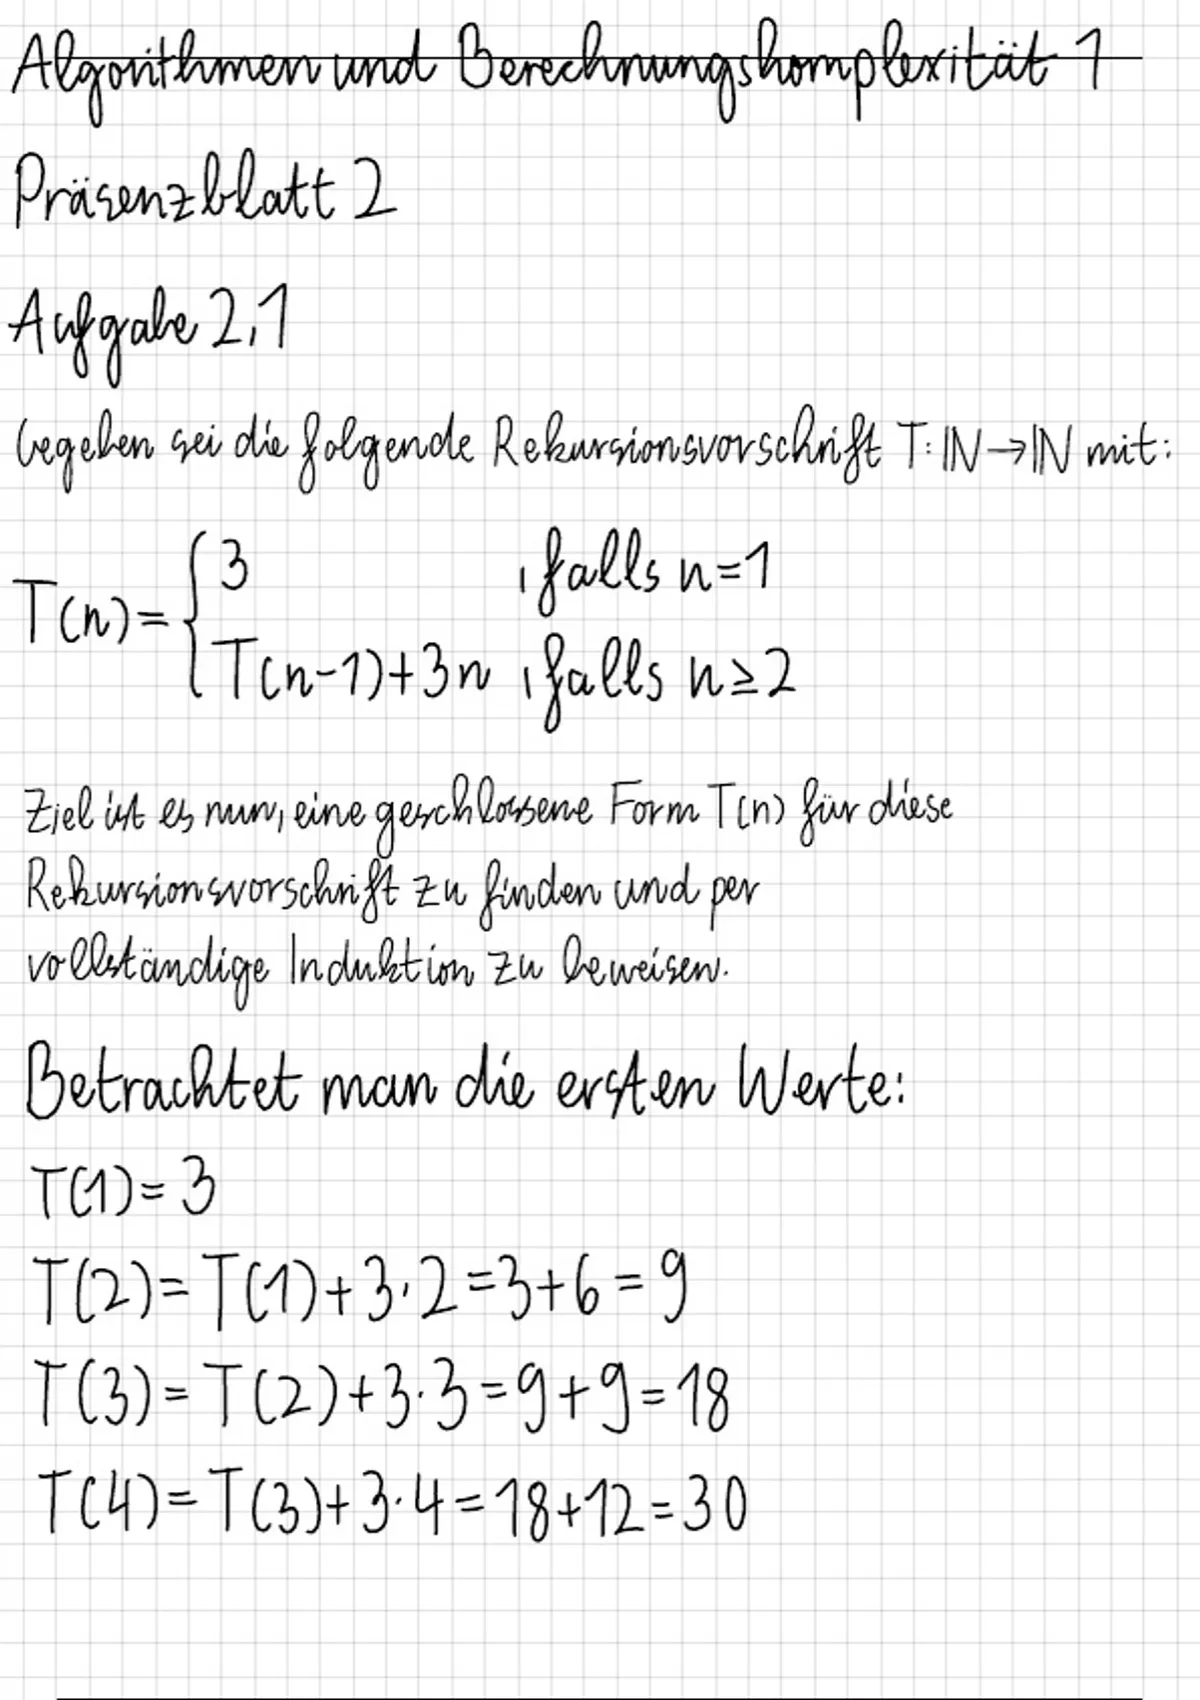 Algorithmen und Berechnungskomplexität 1
Präsenzblatt 2
Aufgabe 2,1
Gegeben sei die folgende Rekursionsvorschrift T: ℕ→ℕ mit:
T(n)= { 3 , falls n=1
T(n-1)+3n , falls n≥2
Ziel ist es nun, eine geschlossene Form T(n) für diese
Rekursionsvorschrift zu finden und per
vollständige Induktion zu beweisen.
Betrachtet man die ersten Werte:
T(1)=3
T(2)=T(1)+3·2=3+6=9
T(3)=T(2)+3·3=9+9=18
T(4)=T(3)+3·4=18+12=30